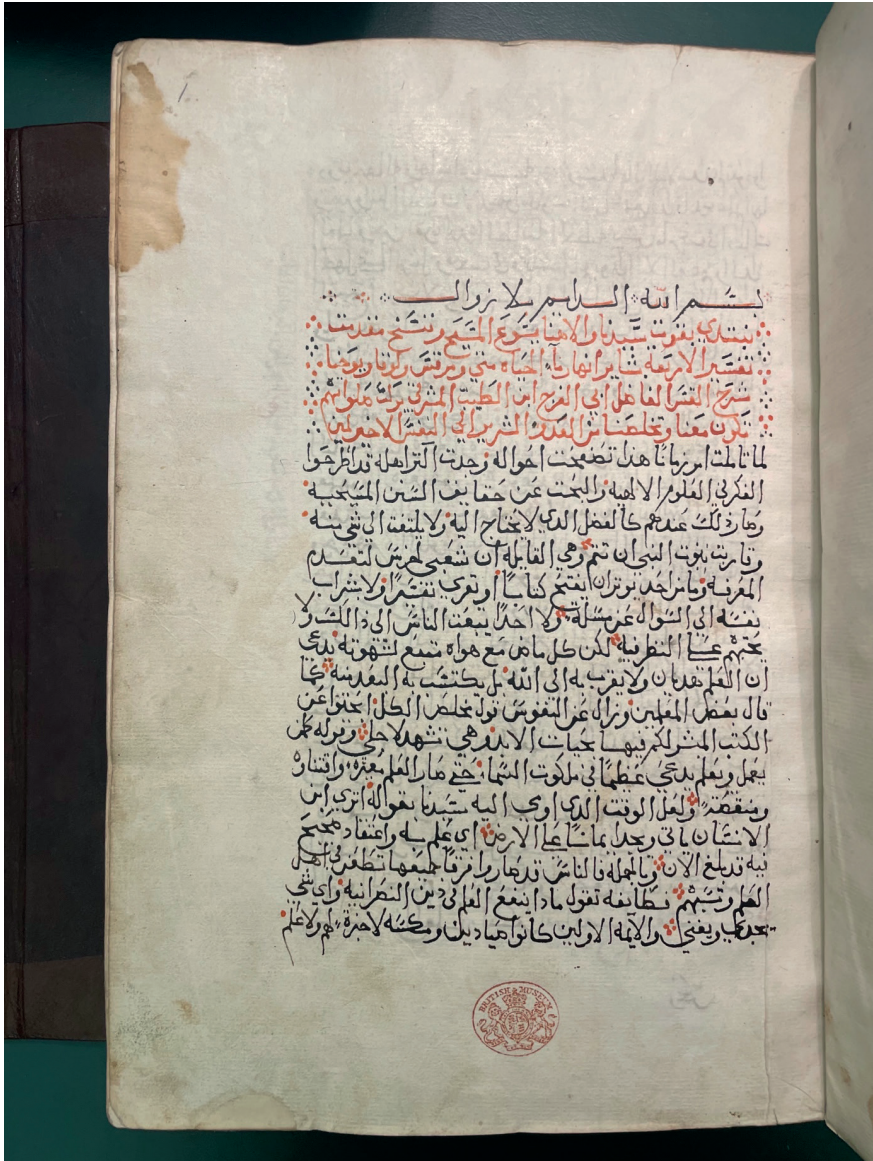 بسم الله الدايم بلا زوال
نبتدي بقوت سيدنا والاهنا يسوع المسيح وننسخ مقدمت
تفسير الاربعة بشاير انهار ماء الحياه متي ومرقس ولوقا ويوحنا
شرح القس الفاضل ابي الفرج ابن الطيب المشرقي بركة صلواتهم
تكون معنا وتخلصنا من العدو الشرير الي النفس الاخير امين
لما تاملت امر زماننا هدا تصفحت احواله وجدت اكثر اهله قد اطرحوا
الفكر في العلوم الالهية والبحت عن حقايق السنن المسيحيه
وصار ذلك عندهم كالفضل الدي لا يحتاج اليه ولا يلتفت الي شي منه
وقاربت نبوت النبي ان تتم وهي القايله ان شعبي لعدم
المعرفه وما من احد يوتر ان يفتح كتاباً او يقري تفسيراً ولا
نفسه الي السوال عن مسلة ولا احداً يبعت الناس الي دالك ولا
يحتهم علي النظر فيه لكن كل ماض مع هواه متبع لشهوته يدعي
ان العلم هديان ولا يقرب به الي الله بل يكتسب به البعد منه كما
قال بعض المعلمين وزال عن النفوس قول مخلص الكل ابحتوا عن
الكتب المبشر لكم فيها بحيات الابد وهي تشهد لاجلي وقوله كمن
يعمل ويعلم يدعي عظيماً في ملكوت السما حتي صار العلم معيره واقتناه
ومنقصة ولعل الوقت الدي اومي اليه سيدنا بقواله اتري ابن
الانسان ياتي ويجد ايماناً علي الارض اي علم به واعتقاد صحيح
فيه قد بلغ الان وبالجمله فالناس قد صاروا فرقاً جميعها تطعن في اهل
العلم وتسبهم فطايفه تقول مادا ينفع العلم في دين النصرانيه واي شي
يجدي ويغني والايمه الاولين كانوا صيادين ومكسه لا خبرة لهم ولا علم
BRITISH MUSEUM